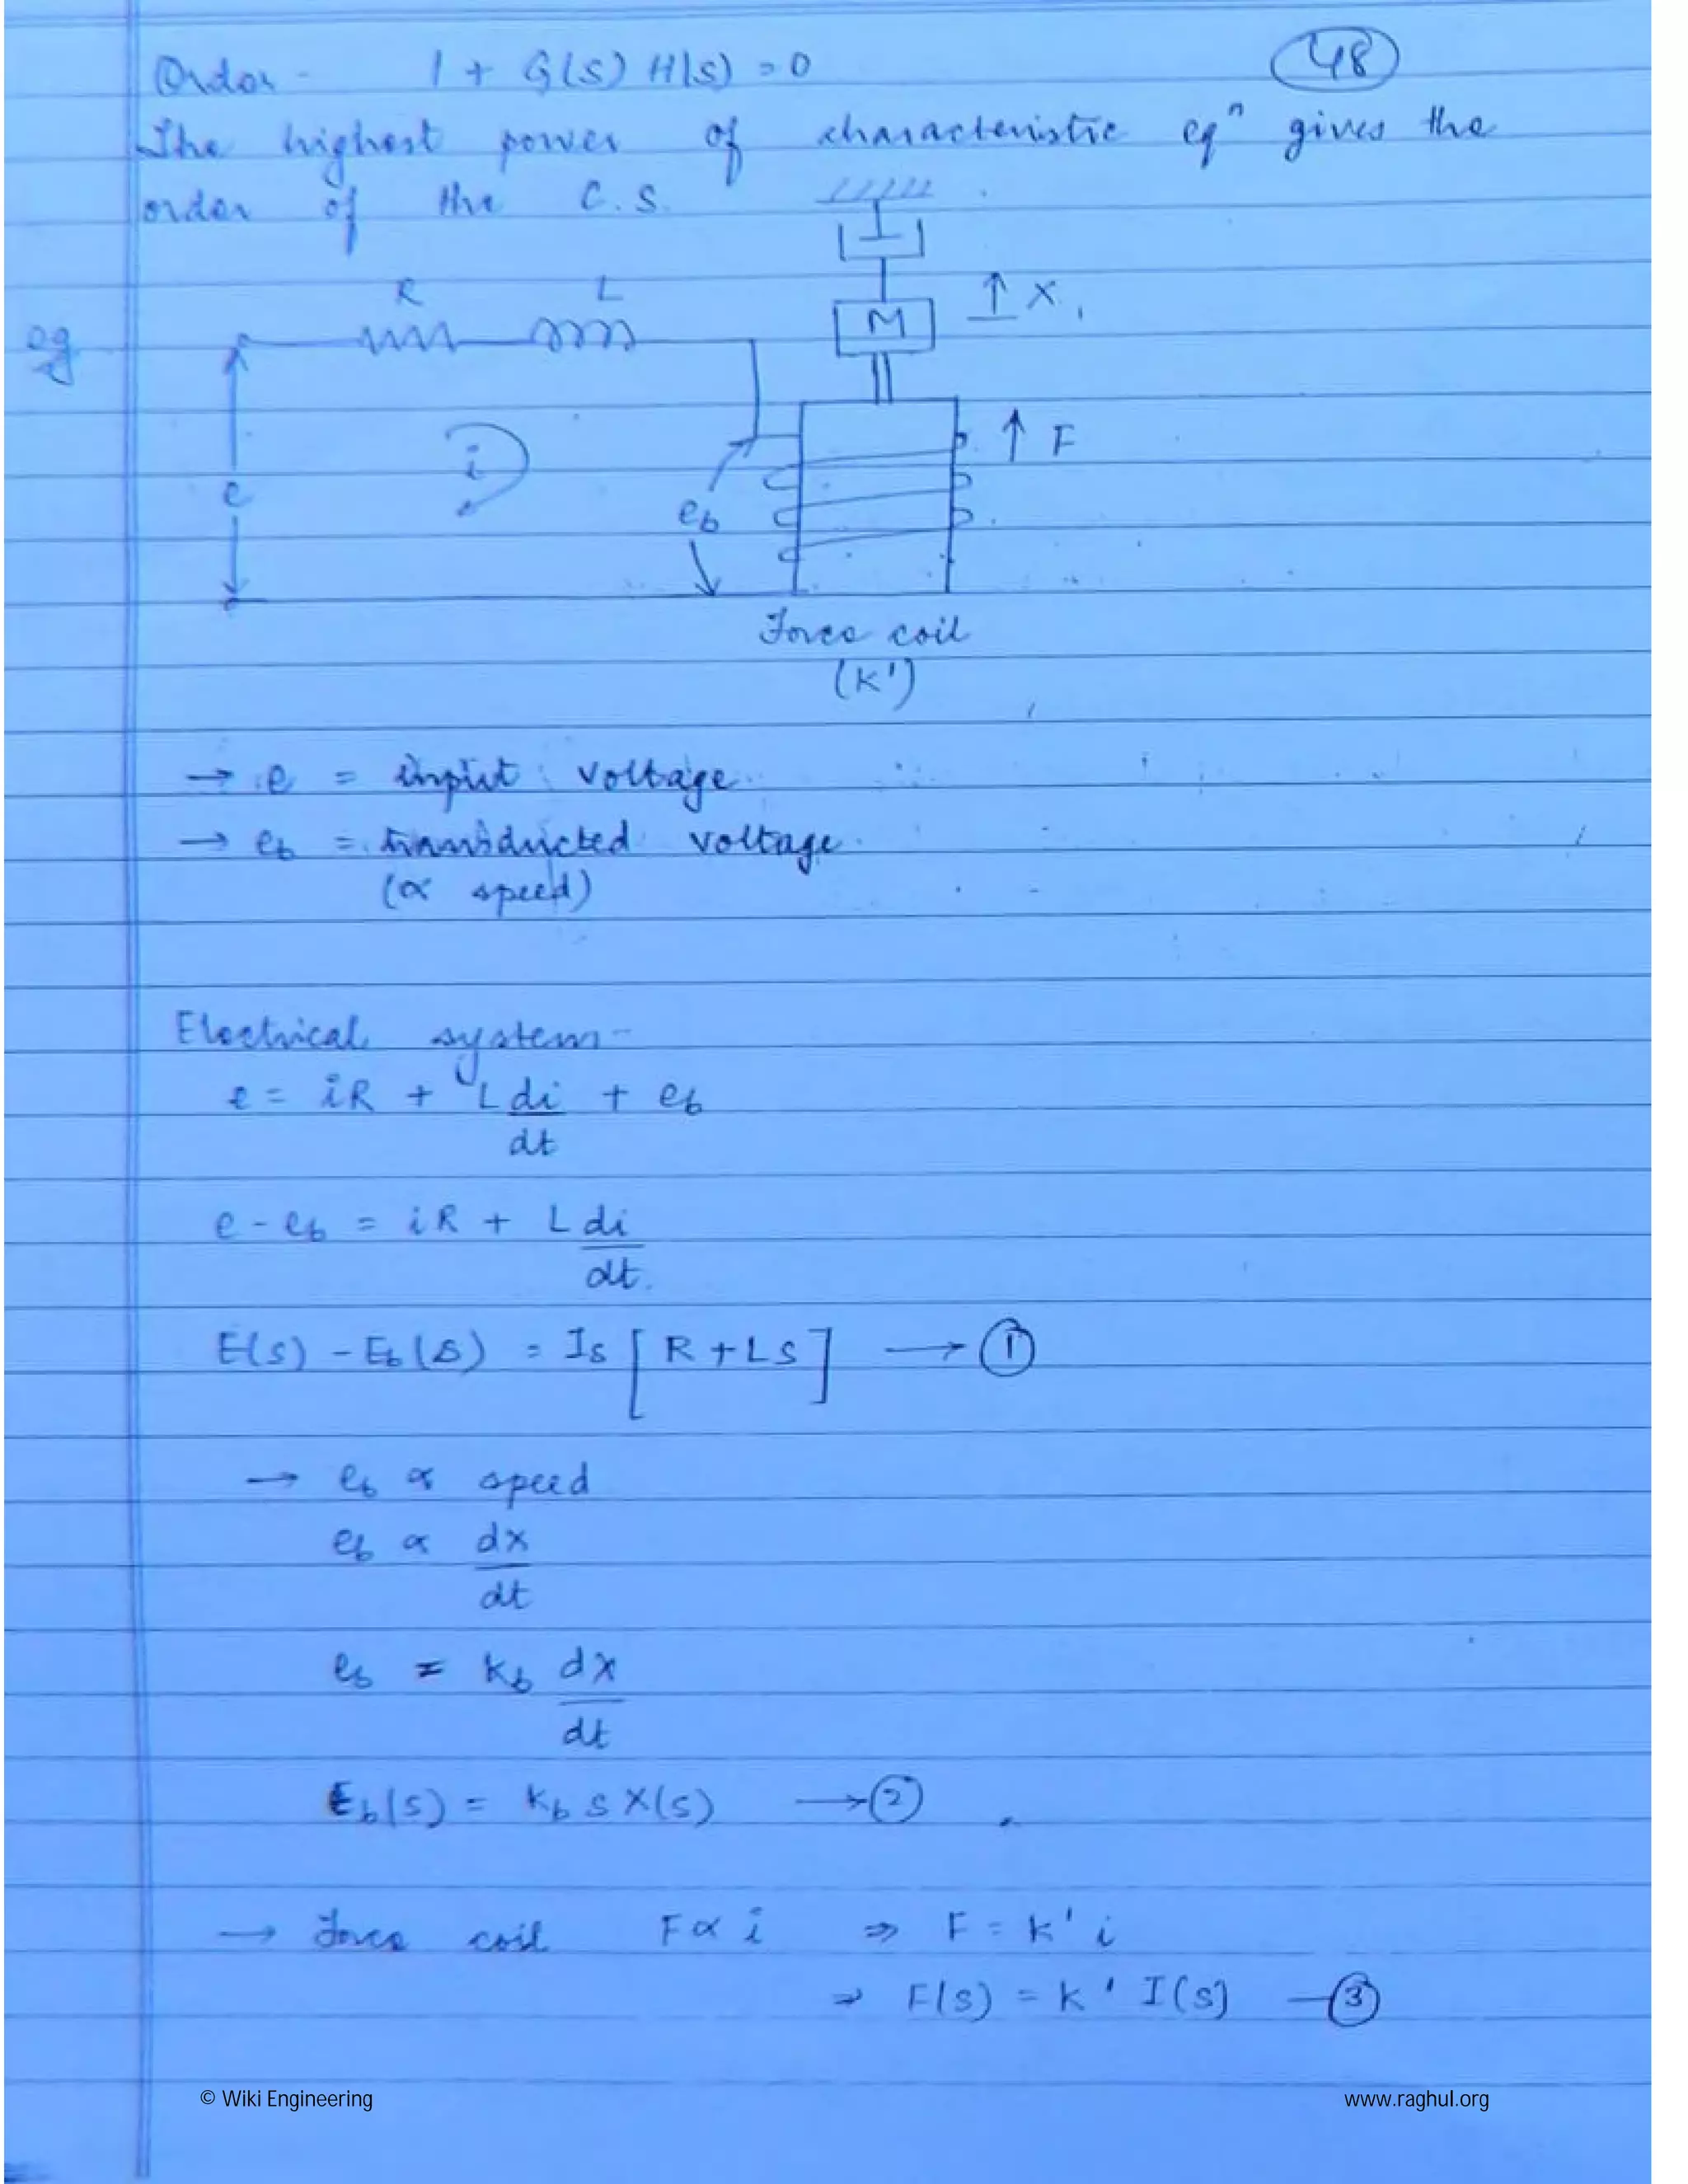 Order - 1 + G(s) H(s) = 0
48
The highest power of characteristic eqⁿ gives the
order of the C.S.
eg
R L
M ↑ X
i
e
↑ F
eb
Force coil
(K')
→ e = input voltage
→ eb = transducted voltage
(∝ speed)
Electrical system -
e = iR + L di/dt + eb
e - eb = iR + L di/dt.
E(s) - Eb(s) = Is [R + Ls] → ①
→ eb ∝ speed
eb ∝ dx/dt
eb = Kb dx/dt
Eb(s) = Kb s X(s) → ②
→ Force coil F ∝ i ⇒ F = K' i
⇒ F(s) = K' I(s) — ③
© Wiki Engineering www.raghul.org